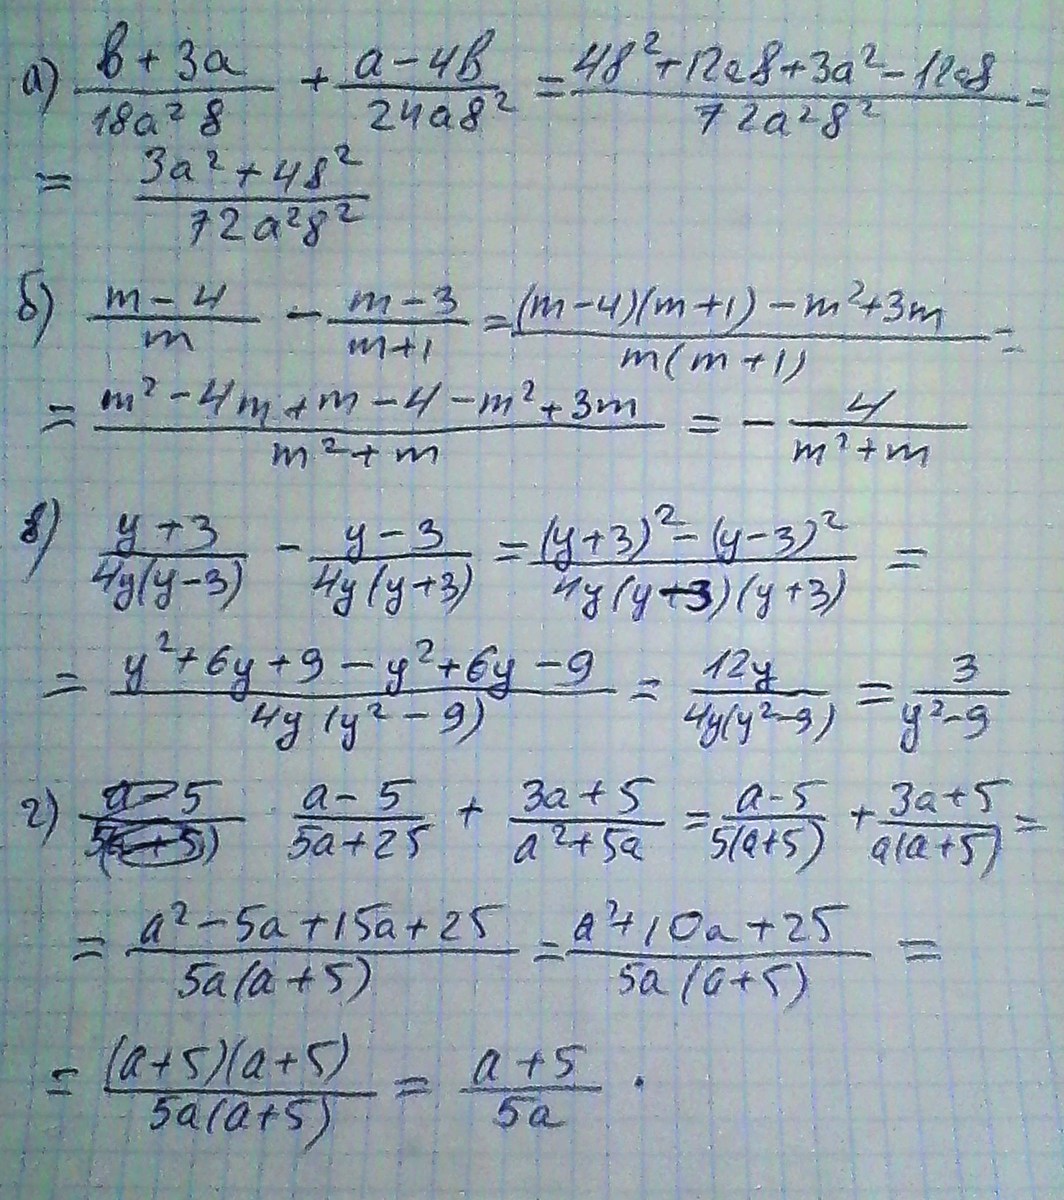 а) (b + 3a)/(18a²b) + (a − 4b)/(24ab²) = (4b² + 12ab + 3a² − 12ab)/(72a²b²) =
= (3a² + 4b²)/(72a²b²)
б) (m − 4)/m − (m − 3)/(m + 1) = ((m − 4)(m + 1) − m² + 3m)/(m(m + 1)) =
= (m² − 4m + m − 4 − m² + 3m)/(m² + m) = − 4/(m² + m)
в) (y + 3)/(4y(y − 3)) − (y − 3)/(4y(y + 3)) = ((y + 3)² − (y − 3)²)/(4y(y − 3)(y + 3)) =
= (y² + 6y + 9 − y² + 6y − 9)/(4y(y² − 9)) = 12y/(4y(y² − 9)) = 3/(y² − 9)
г) (a − 5)/(5a + 25) + (3a + 5)/(a² + 5a) = (a − 5)/(5(a + 5)) + (3a + 5)/(a(a + 5)) =
= (a² − 5a + 15a + 25)/(5a(a + 5)) = (a² + 10a + 25)/(5a(a + 5)) =
= ((a + 5)(a + 5))/(5a(a + 5)) = (a + 5)/(5a).